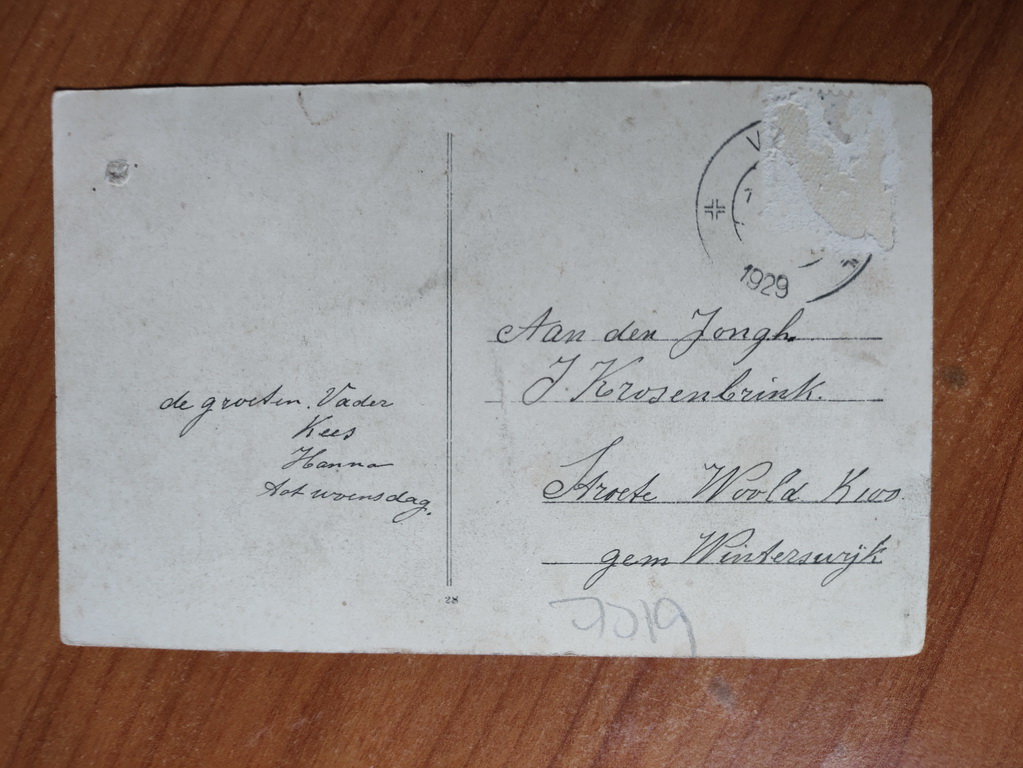 de groeten. Vader
Kees
Hanna
tot woensdag.
28
V
1929
Aan den Jongh.
J. Krosenbrink.
Woold K100.
gem Winterswijk